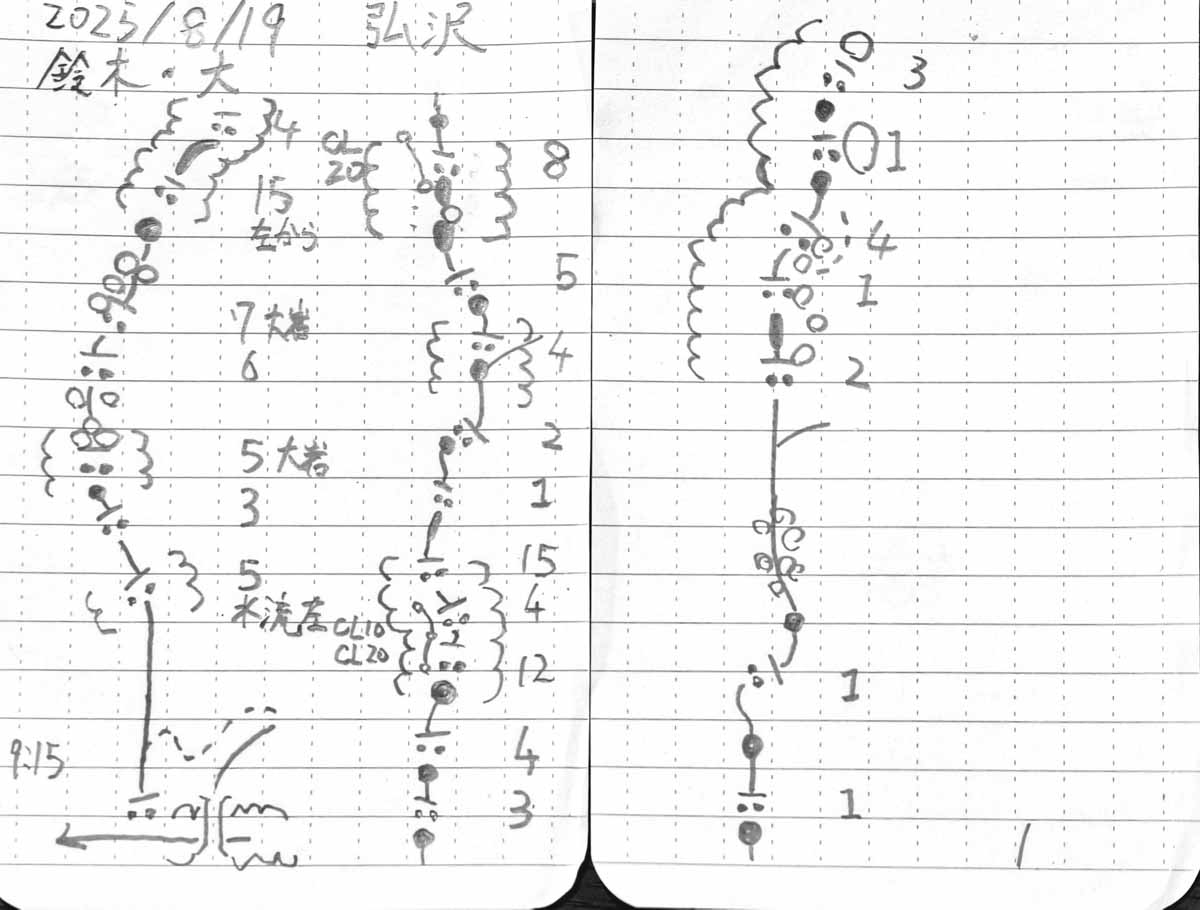 2025/8/19 弘沢
鈴木・大
4
15
左から
7 大岩
6
5 大岩
3
5
水流左
9:15
CL
20
8
5
4
2
1
15
4
CL10
CL20
12
4
3
3
1
4
1
2
1
1
1